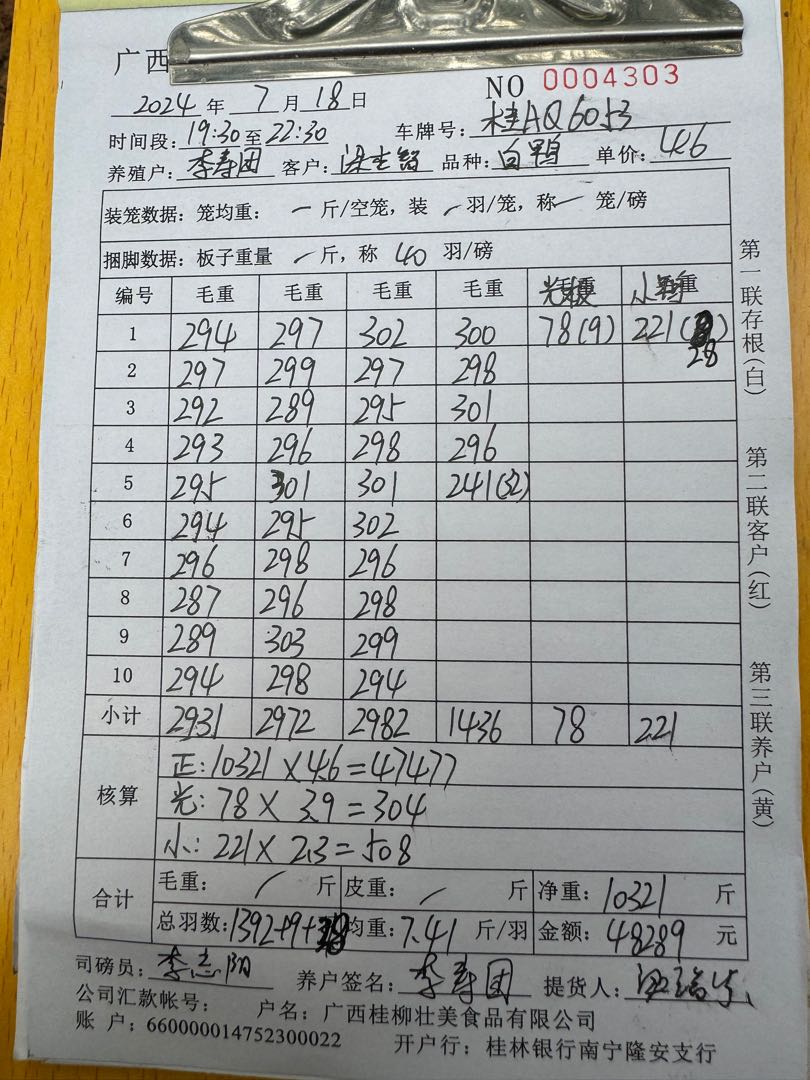 广西
NO 0004303
2024 年 7 月 18 日
时间段: 19:30 至 22:30 车牌号: 桂AQ6053
养殖户: 李寿团 客户: 品种: 白鸭 单价: 4.6
装笼数据: 笼均重: 一 斤/空笼, 装 / 羽/笼, 称 一 笼/磅
捆脚数据: 板子重量 / 斤, 称 40 羽/磅
编号 毛重 毛重 毛重 毛重
1 294 297 302 300 78(9) 221( )
28
2 297 299 297 298
3 292 289 295 301
4 293 296 298 296
5 295 301 301 241(32)
6 294 295 302
7 296 298 296
8 287 296 298
9 289 303 299
10 294 298 294
小计 2931 2972 2982 1436 78 221
核算 正: 10321 X 4.6 = 47477
光: 78 X 3.9 = 304
小: 221 X 2.3 = 508
合计 毛重: / 斤 皮重: / 斤 净重: 10321 斤
总羽数: 1392+9+ 均重: 7.41 斤/羽 金额: 48289 元
司磅员: 李志阳 养户签名: 李寿团 提货人:
公司汇款帐号: 户名: 广西桂柳壮美食品有限公司
账 户: 660000014752300022 开户行: 桂林银行南宁隆安支行
第一联存根(白) 第二联客户(红) 第三联养户(黄)